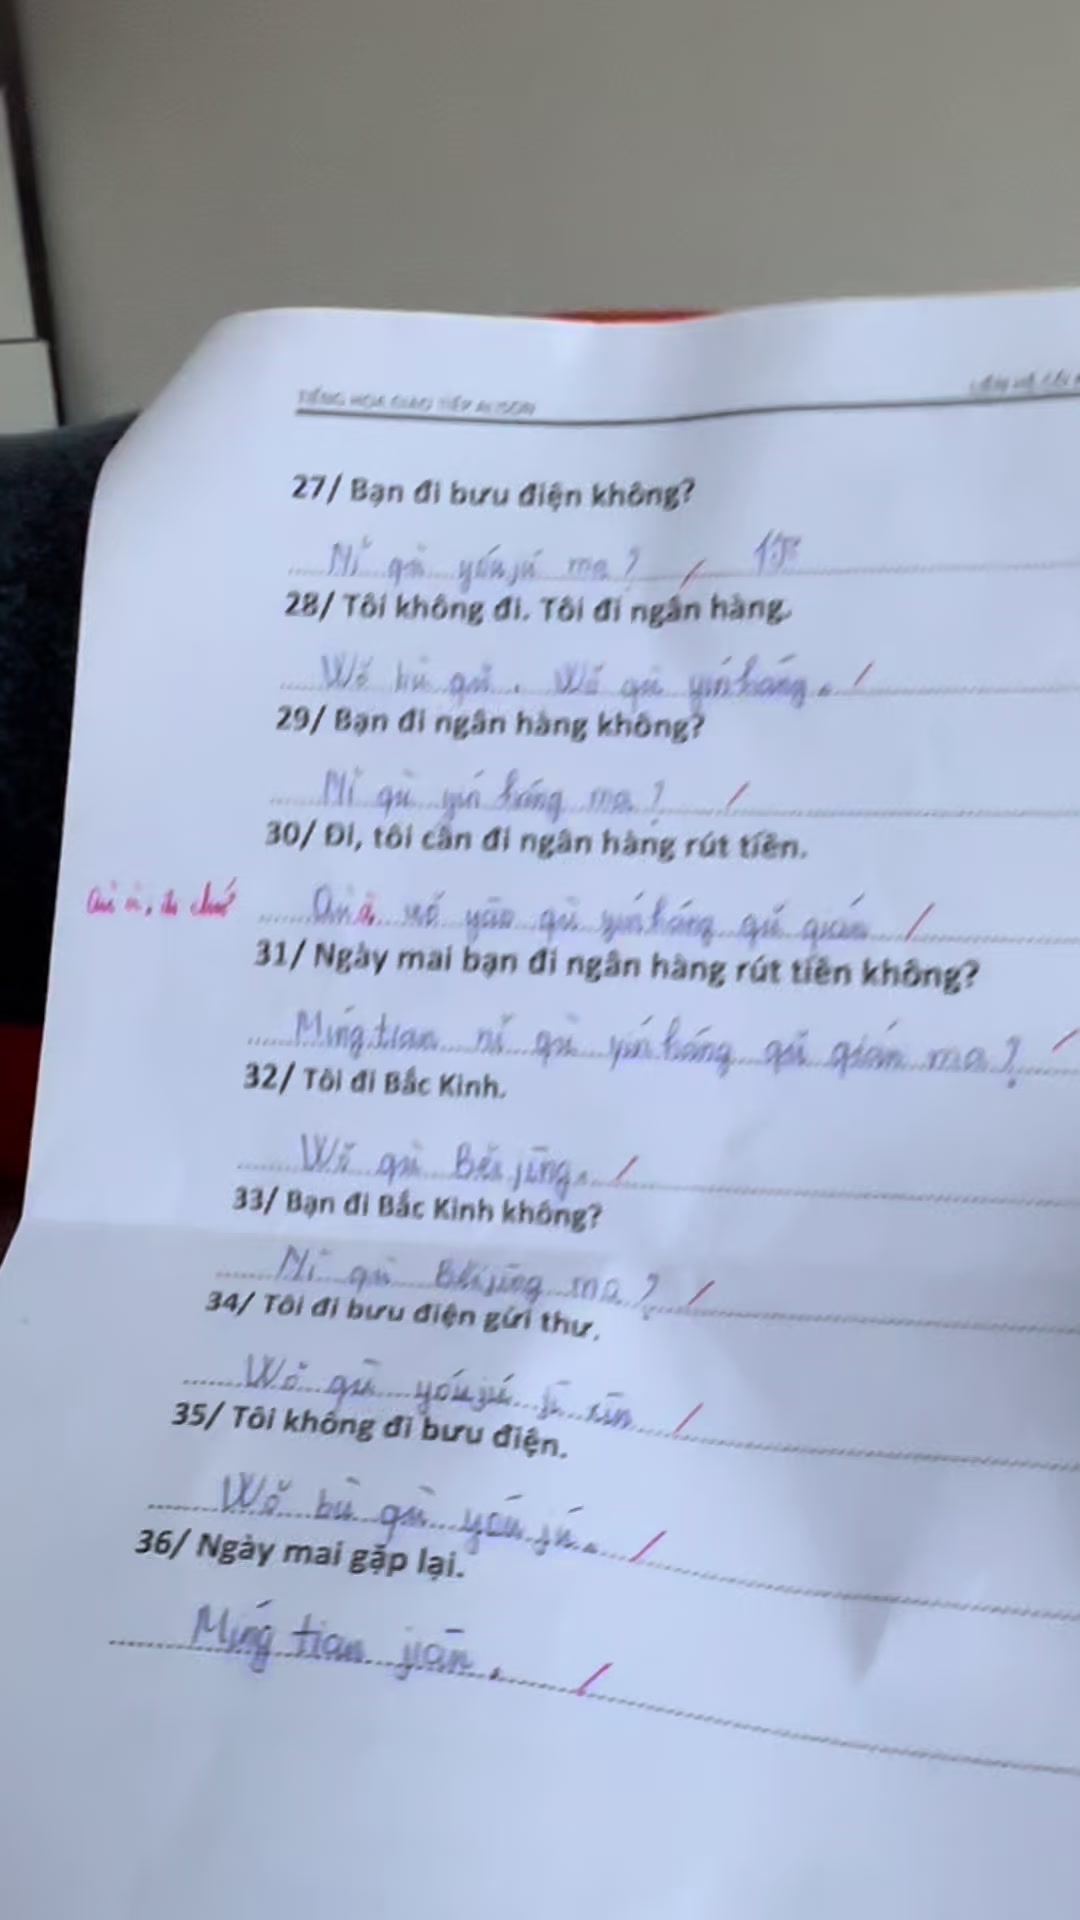 TIẾNG HOA GIAO TIẾP
27/ Bạn đi bưu điện không?
Nǐ qù yóujú ma?
28/ Tôi không đi. Tôi đi ngân hàng.
Wǒ bù qù. Wǒ qù yínháng.
29/ Bạn đi ngân hàng không?
Nǐ qù yínháng ma?
30/ Đi, tôi cần đi ngân hàng rút tiền.
wǒ yào qù yínháng qǔ qián
31/ Ngày mai bạn đi ngân hàng rút tiền không?
Míngtian nǐ qù yínháng qǔ qián ma?
32/ Tôi đi Bắc Kinh.
Wǒ qù Běijīng.
33/ Bạn đi Bắc Kinh không?
Nǐ qù Běijīng ma?
34/ Tôi đi bưu điện gửi thư.
Wǒ qù yóujú jì xìn
35/ Tôi không đi bưu điện.
Wǒ bù qù yóujú.
36/ Ngày mai gặp lại.
Míng tian jiàn.